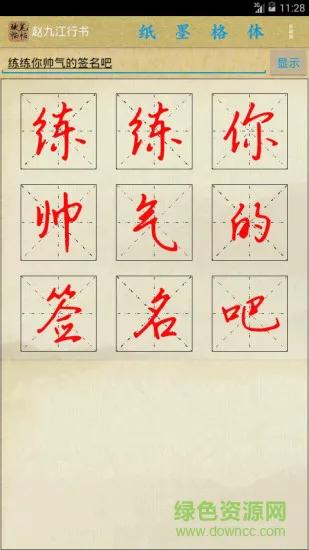 3G 11:28
硬笔临帖 赵九江行书 纸 墨 格 体
练练你帅气的签名吧 显示
练 练 你
帅 气 的
签 名 吧
绿色资源网
www.downcc.com